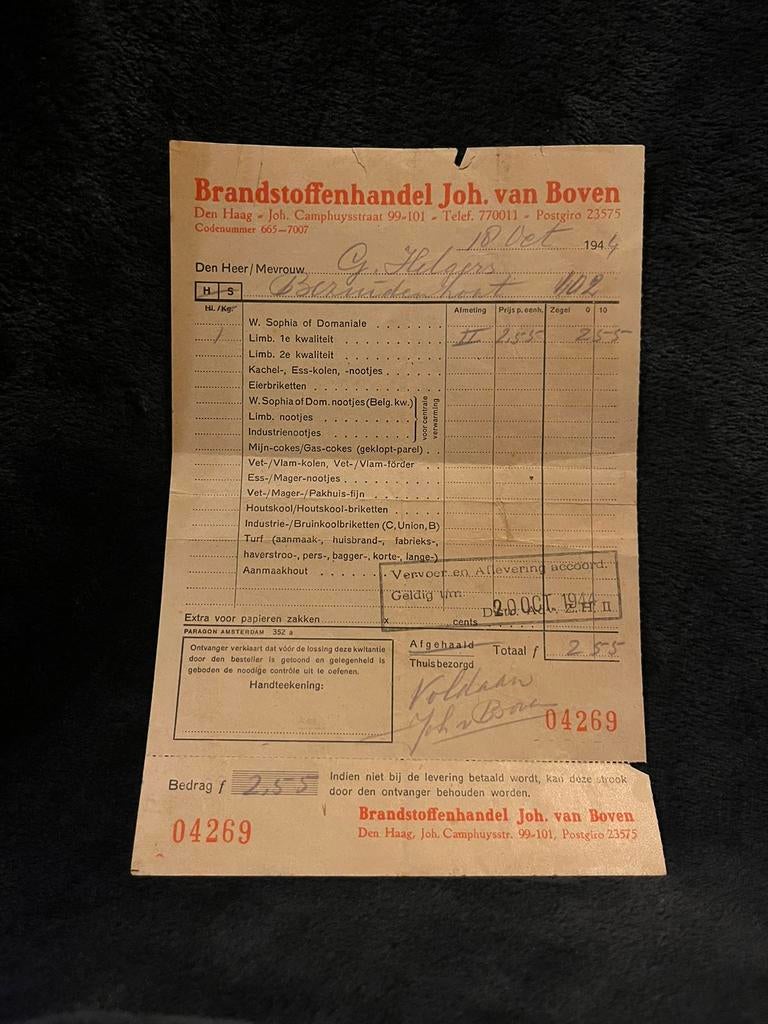 Brandstoffenhandel Joh. van Boven
Den Haag - Joh. Camphuysstraat 99-101 - Telef. 770011 - Postgiro 23575
Codenummer 665-7007
18 Oct 1944
Den Heer/Mevrouw G. Helgers
H S Bezuidenhout 402
Hl./Kg. Afmeting Prijs p. eenh. Zegel 0 10
W. Sophia of Domaniale
1 Limb. 1e kwaliteit II 2,55 2 55
Limb. 2e kwaliteit
Kachel-, Ess-kolen, -nootjes
Eierbriketten
W. Sophia of Dom. nootjes (Belg. kw.)
Limb. nootjes
Industrienootjes
voor centrale verwarming
Mijn-cokes/Gas-cokes (geklopt-parel)
Vet-/Vlam-kolen, Vet-/Vlam-förder
Ess-/Mager-nootjes
Vet-/Mager-/Pakhuis-fijn
Houtskool/Houtskool-briketten
Industrie-/Bruinkoolbriketten (C, Union, B)
Turf (aanmaak-, huisbrand-, fabrieks-,
haverstroo-, pers-, bagger-, korte-, lange-)
Aanmaakhout
Vervoer en Aflevering accoord.
Geldig t/m:
20 OCT. 1944
Extra voor papieren zakken x cents
PARAGON AMSTERDAM 352 a
Ontvanger verklaart dat vóór de lossing deze kwitantie
door den besteller is getoond en gelegenheid is
geboden de noodige contrôle uit te oefenen.
Handteekening:
Afgehaald
Thuisbezorgd
Totaal f 2 55
Voldaan
Joh v Boven
04269
Bedrag f 2,55
Indien niet bij de levering betaald wordt, kan deze strook
door den ontvanger behouden worden.
Brandstoffenhandel Joh. van Boven
Den Haag, Joh. Camphuysstr. 99-101, Postgiro 23575
04269